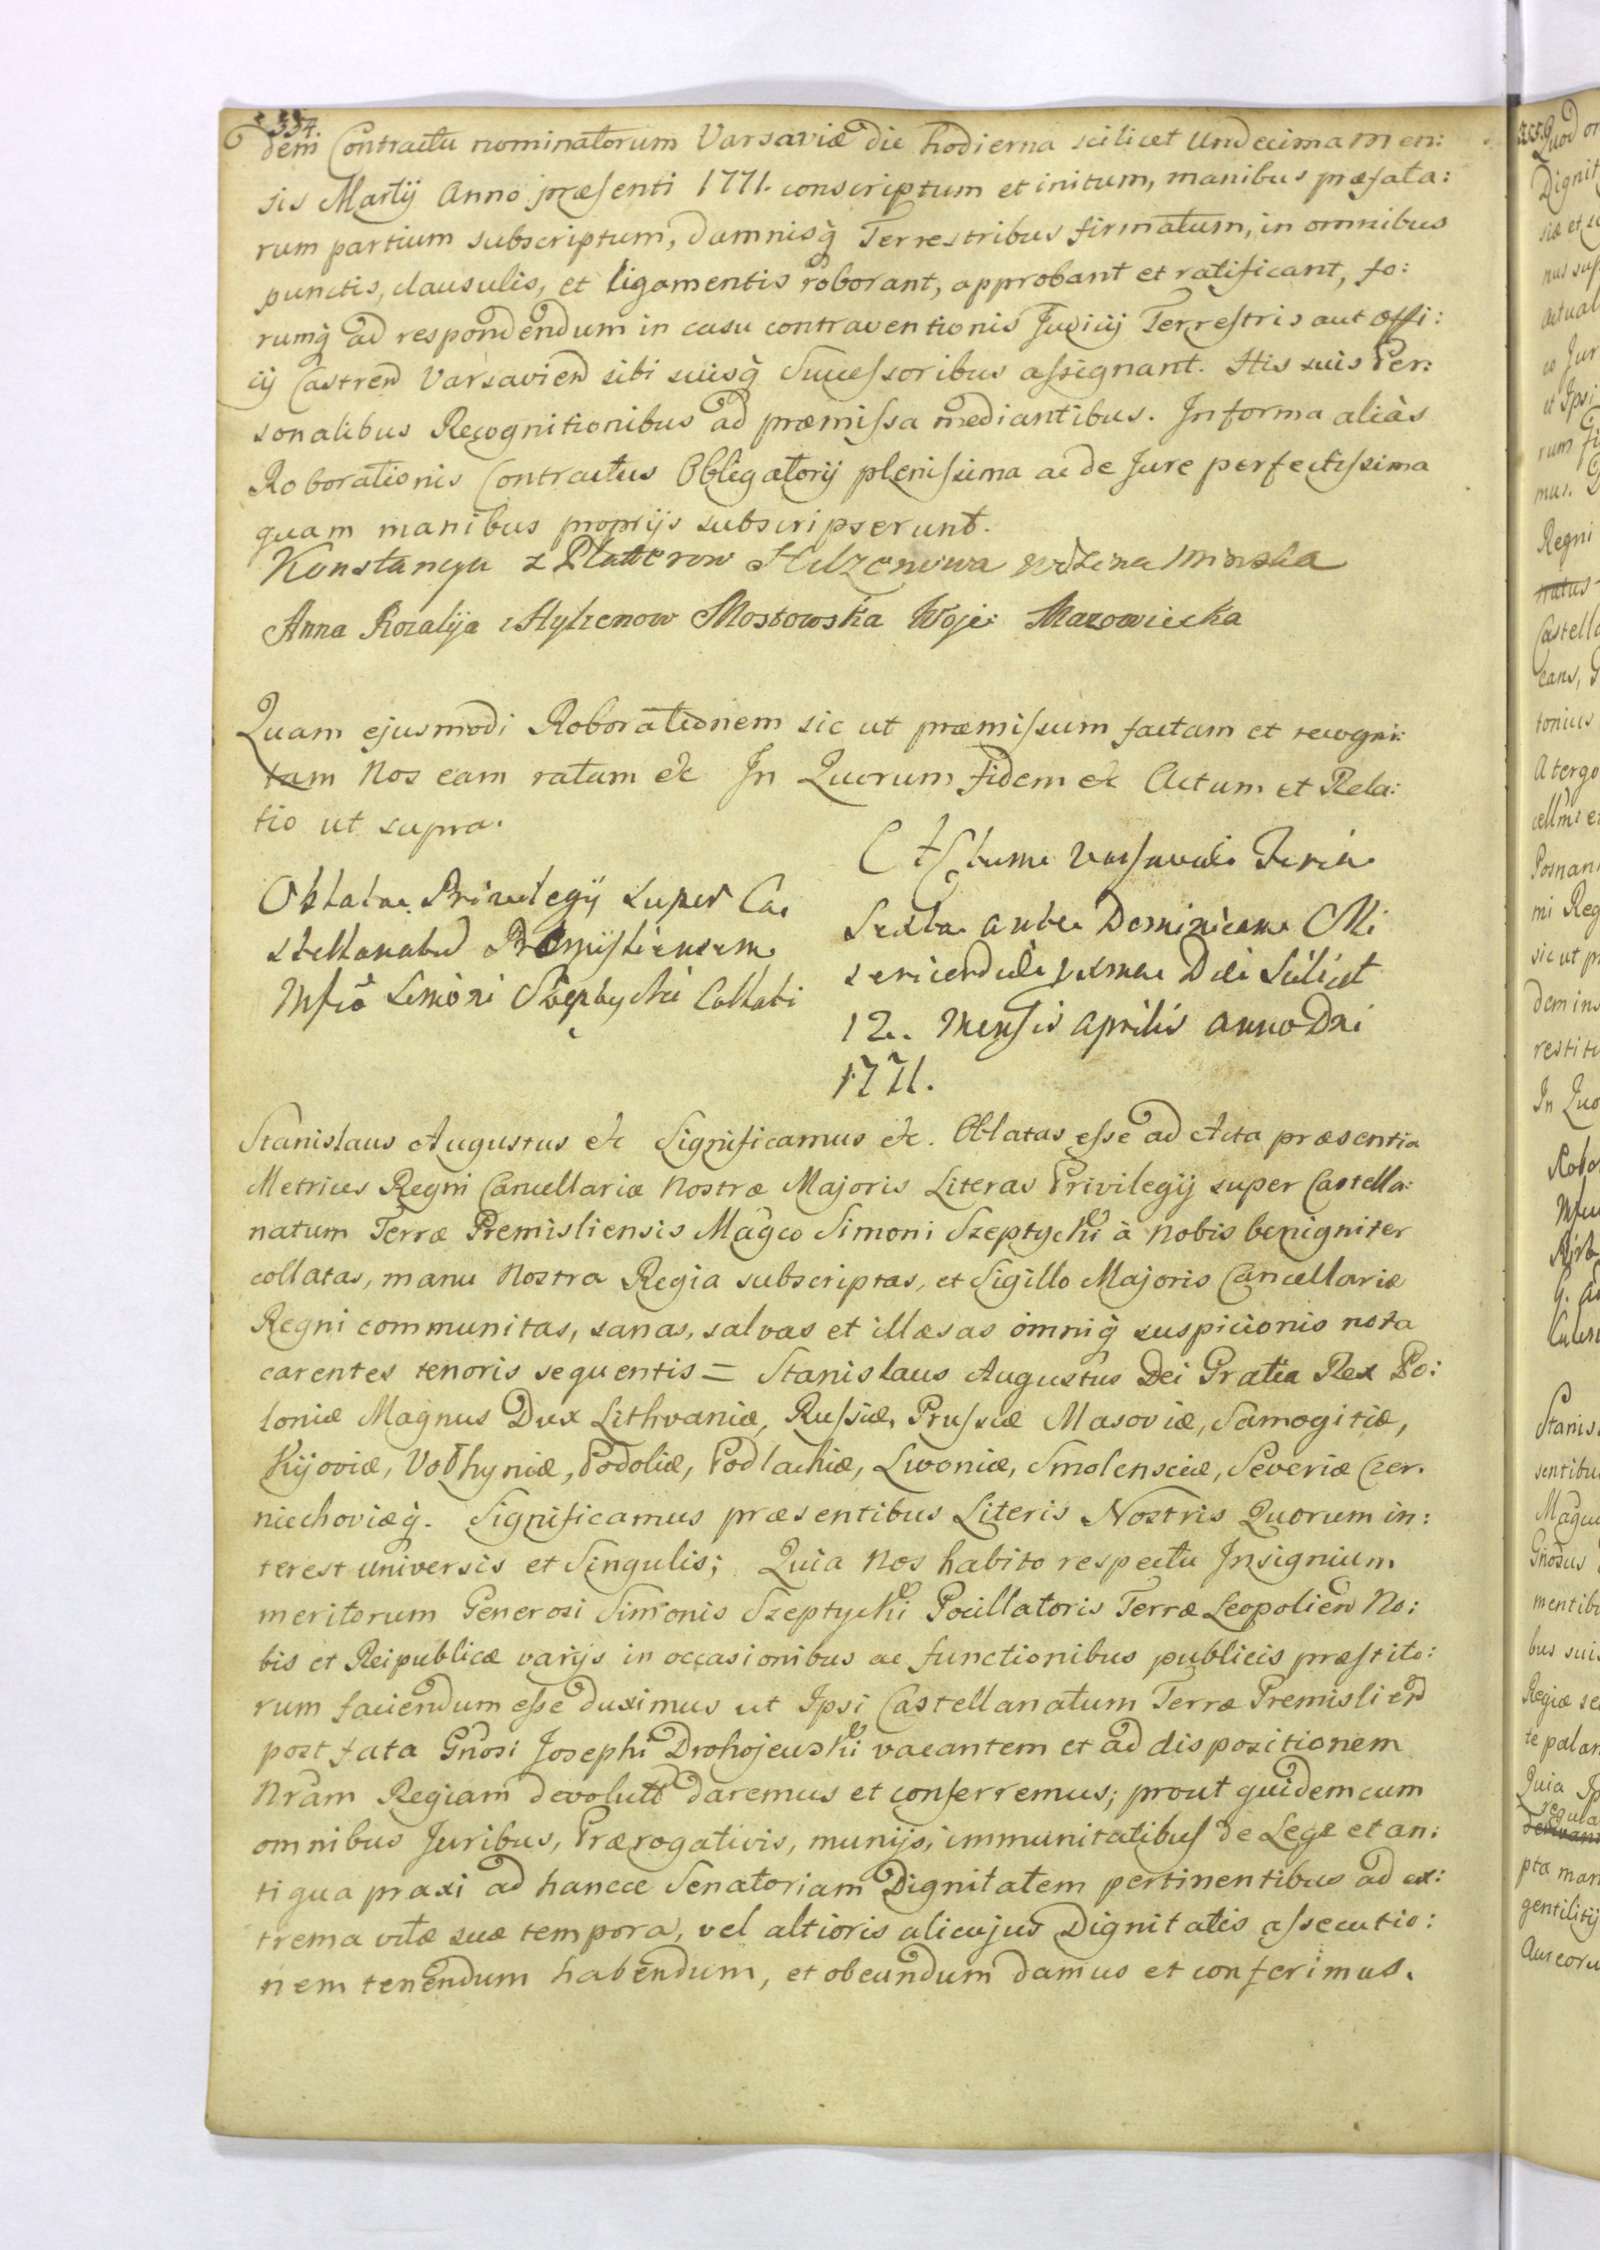 334.
dem Contractu nominatorum Varsaviæ die hodierna scilicet undecima men:
sis Martij Anno præsenti 1771. conscriptum et initum, manibus præfata:
rum partium subscriptum, damnisq̀ Terrestribus firmatum, in omnibus
punctis, clausulis, et ligamentis roborant, approbant et ratificant, fo:
rumq̀ ad respondendum in casu contraventionis Judicij Terrestris aut Offi:
cij Castren Varsavien sibi suisq̀ Successoribus assignant. His suis Per:
sonalibus Recognitionibus ad præmissa mediantibus. In forma aliàs
Roborationis Contractus Obligatorij plenissima ac de Jure perfectissima
quam manibus proprijs subscripserunt.
Konstancya z Platerow Hilzenowa Minska
Anna Rozalija z Hylzenow Mostowska Woje: Mazowiecka
Quam ejusmodi Roborationem sic ut præmissum factam et recogni:
tam Nos eam ratam &c In Quorum fidem &c Actum et Rela:
tio ut supra.
Oblatae Privilegij super Ca
stellanatu Præmisliensem
Mfco Simoni Szeptycki Collati
Actum Varsaviae Feria
Sexta ante Dominicam Mi
sericordiae proxima Die Scilicet
12. Mensis Aprilis Anno Dni
1771.
Stanislaus Augustus &c Significamus &c. Oblatas esse ad Acta præsentia
Metrices Regni Cancellariæ Nostræ Majoris Literas Privilegij super Castella:
natum Terræ Premisliensis Magco Simoni Szeptycki à Nobis benigniter
collatas, manu Nostra Regia subscriptas, et Sigillo Majoris Cancellariæ
Regni communitas, sanas, salvas et illæsas omniq̀ suspicionis nota
carentes tenoris sequentis = Stanislaus Augustus Dei Gratia Rex Po:
loniæ Magnus Dux Lithvaniæ, Russiæ, Prussiæ Masoviæ, Samogitiæ,
Kijoviæ, Volhyniæ, Podoliæ, Podlachiæ, Livoniæ, Smolensciæ, Severiæ Czer.
niechoviæq̀. Significamus præsentibus Literis Nostris Quorum in:
terest universis et Singulis; Quia Nos habito respectu Insignium
meritorum Generosi Simonis Szeptycki Pocillatoris Terræ Leopolien No:
bis et Reipublicæ varijs in occasionibus ac functionibus publicis præstito:
rum faciendum esse duximus ut Ipsi Castellanatum Terræ Premislien
post fata Gnosi Josephi Drohojewski vacantem et ad dispositionem
Nram Regiam devolut daremus et conferremus; prout quidem cum
omnibus Juribus, Prærogativis, munijs, immunitatibus de Lege et an:
tiqua praxi ad hancce Senatoriam Dignitatem pertinentibus ad ex:
trema vitæ suæ tempora, vel altioris alicujus Dignitatis assecutio:
nem tenendum habendum, et obeundum damus et conferimus.